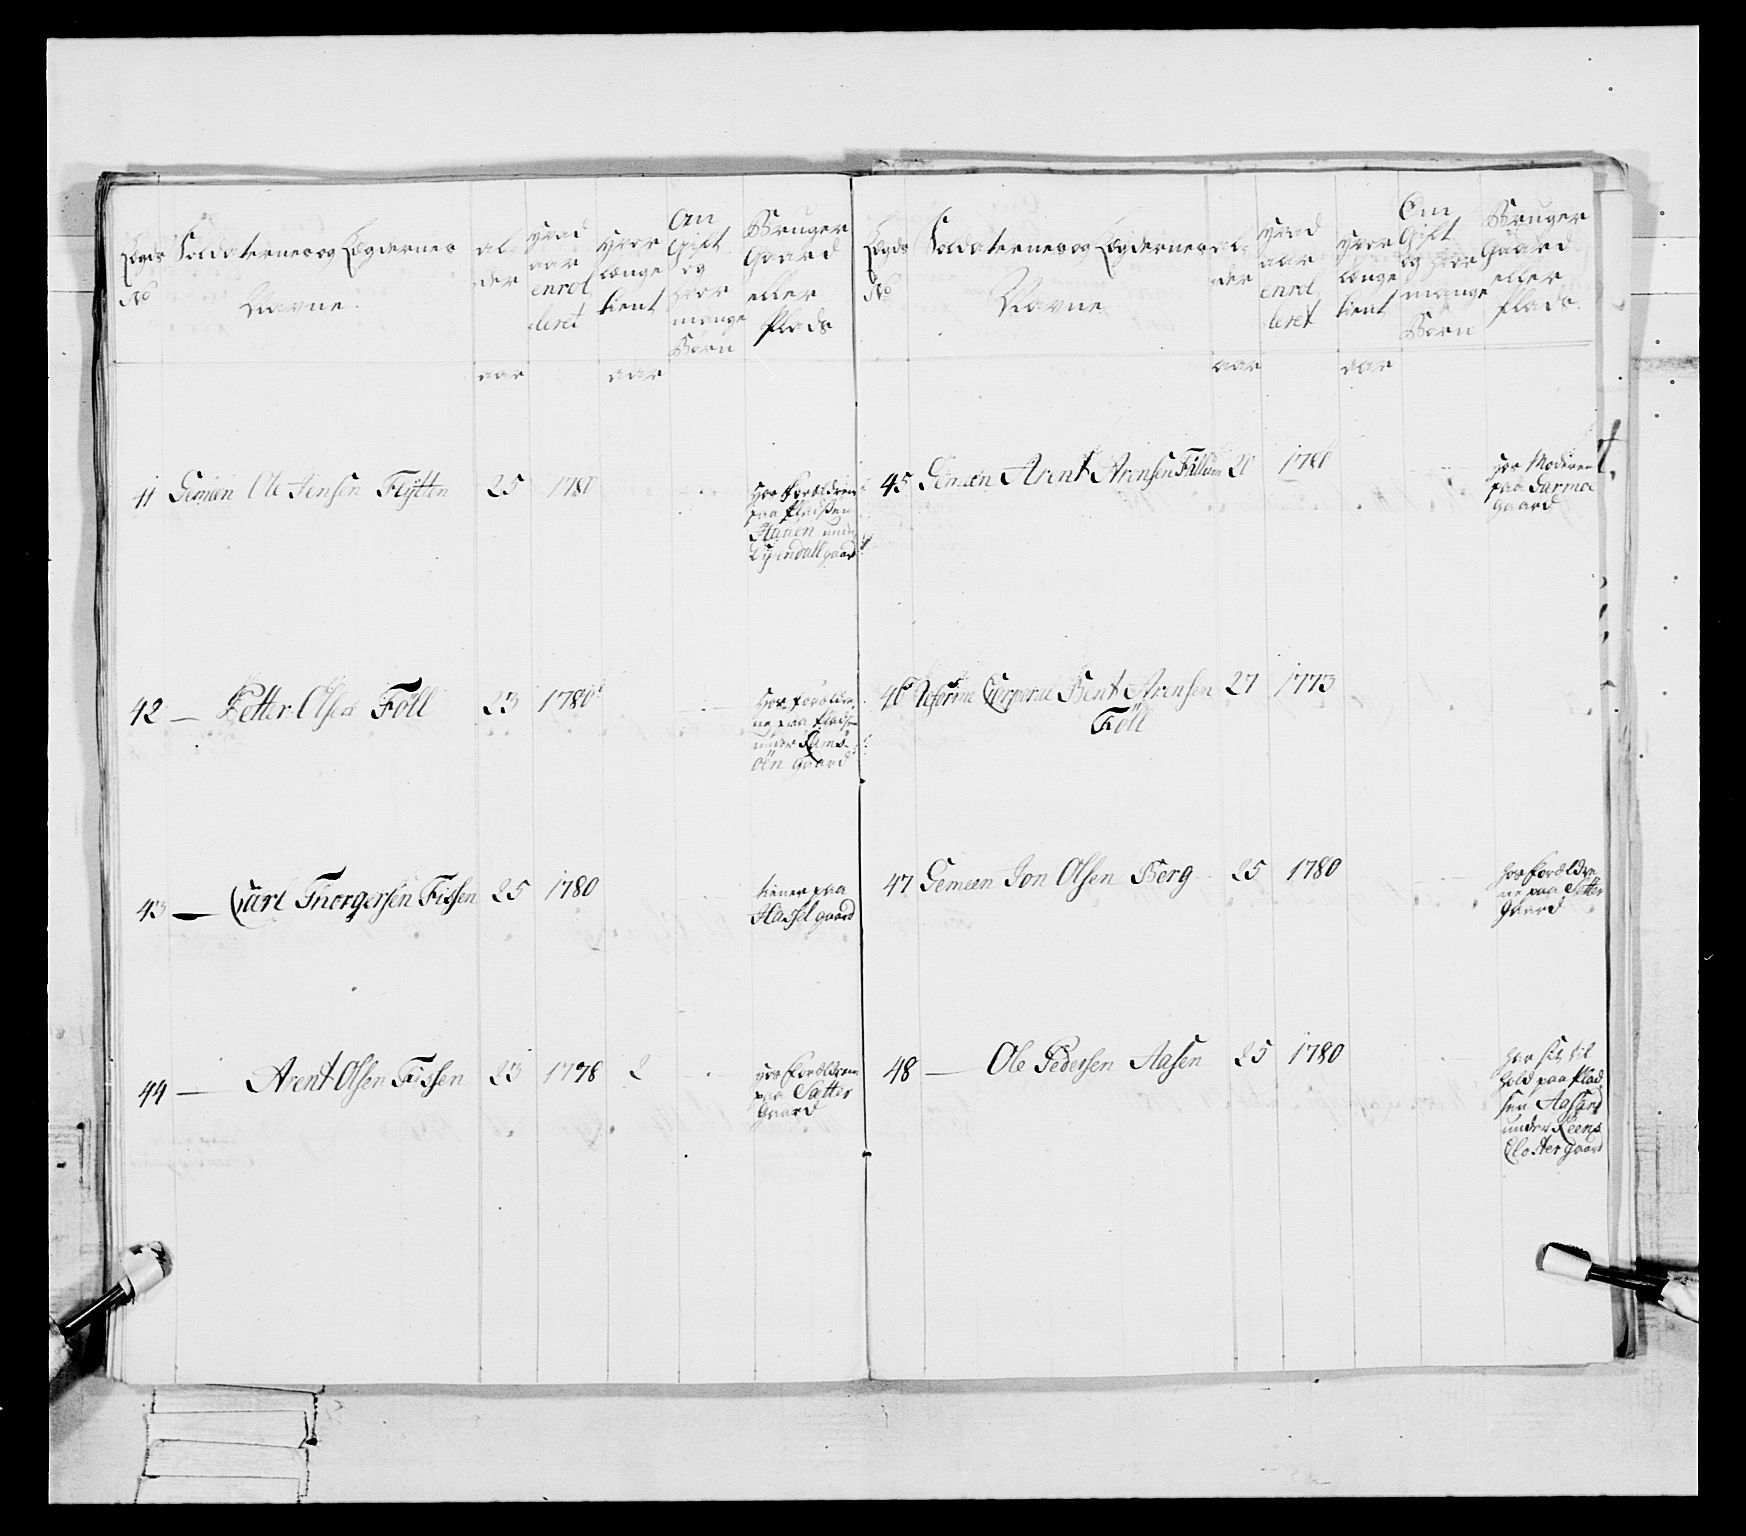 Lægds Soldaternes og Lægdernes
No Navne
al-
der
aar
hvad
aar
enrol
leret
hvor
længe
tient
aar
Om
Gift
og
hvor
mange
Børn
Bruger
Gaard
eller
Plads
41 Gemeen Ole Jensen Flÿtten 25 1780
hos Forældrene
paa Pladsen
under
gaard
42 — Petter Olsen Föll 23 1780
hos Forældre
ne paa Pladsen
under Rams-
öen Gaard
43 — Carl Thorgersen Fissen 25 1780
tiener paa
Hassel gaard
44 — Arent Olsen Fissen 23 1778 2
hos Forældrene
paa Sætter
Gaard
Lægds Soldaternes og Lægdernes
No Navne
al-
der
aar
hvad
aar
enrol
leret
hvor
længe
tient
aar
Om
Gift
og hvor
mange
Børn
Bruger
Gaard
eller
Plads
45 Gemeen Arent Arensen Fillum 20 1780
hos Moderen
paa Garmoe
gaard
46 Reforme Corporal Bent Arensen 27 1773
Föll
47 Gemeen Jon Olsen Berg 25 1780
hos Forældre
ne paa Sætter
Gaard
48 — Ole Pedersen Aasen 25 1780
har sit til
hold paa Plad
sen Aasen
under Reens
Closter gaard